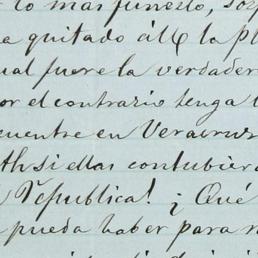 lo mas funesto, sos
a quitado all la pl
ual fuere la verdader
or el contrario tenga l
cuentre en Veracruz
th si ellas contubier
República! ¡ Qué
pueda haber para n